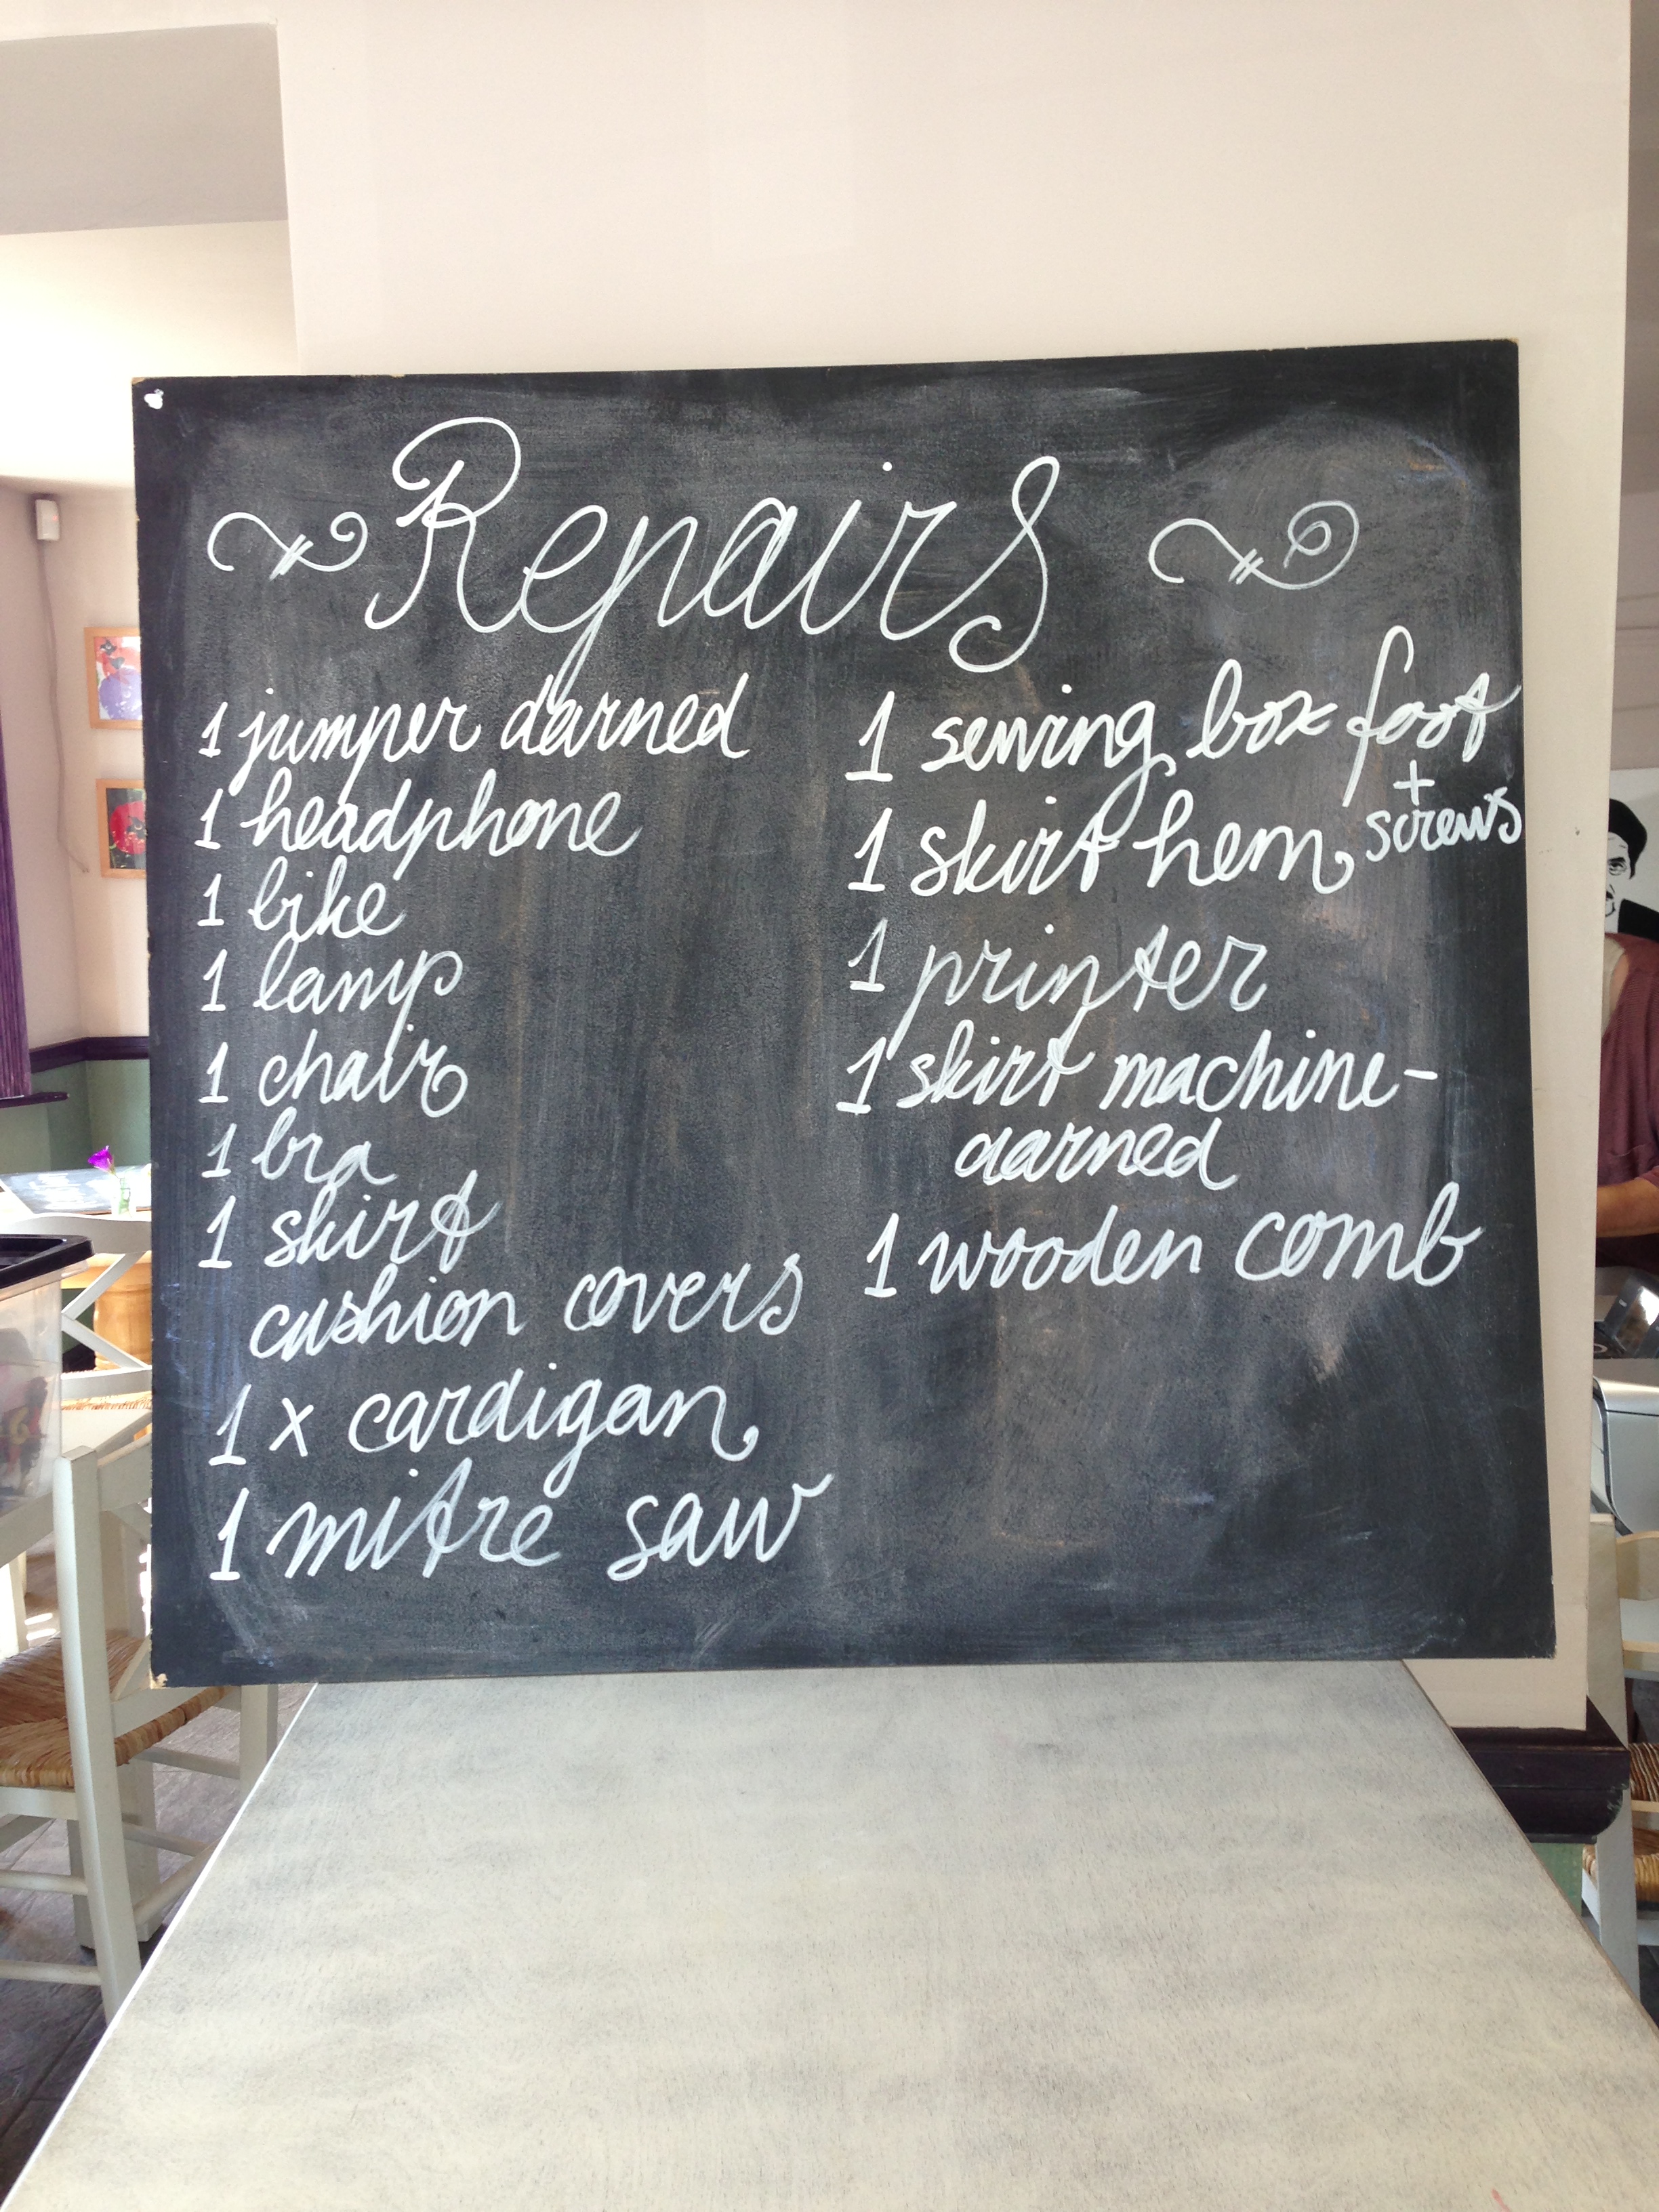 Repairs
1 jumper darned
1 headphone
1 bike
1 lamp
1 chair
1 bra
1 skirt
cushion covers
1 x cardigan
1 mitre saw
1 sewing box foot
+ screws
1 skirt hem
1 printer
1 skirt machine-
darned
1 wooden comb